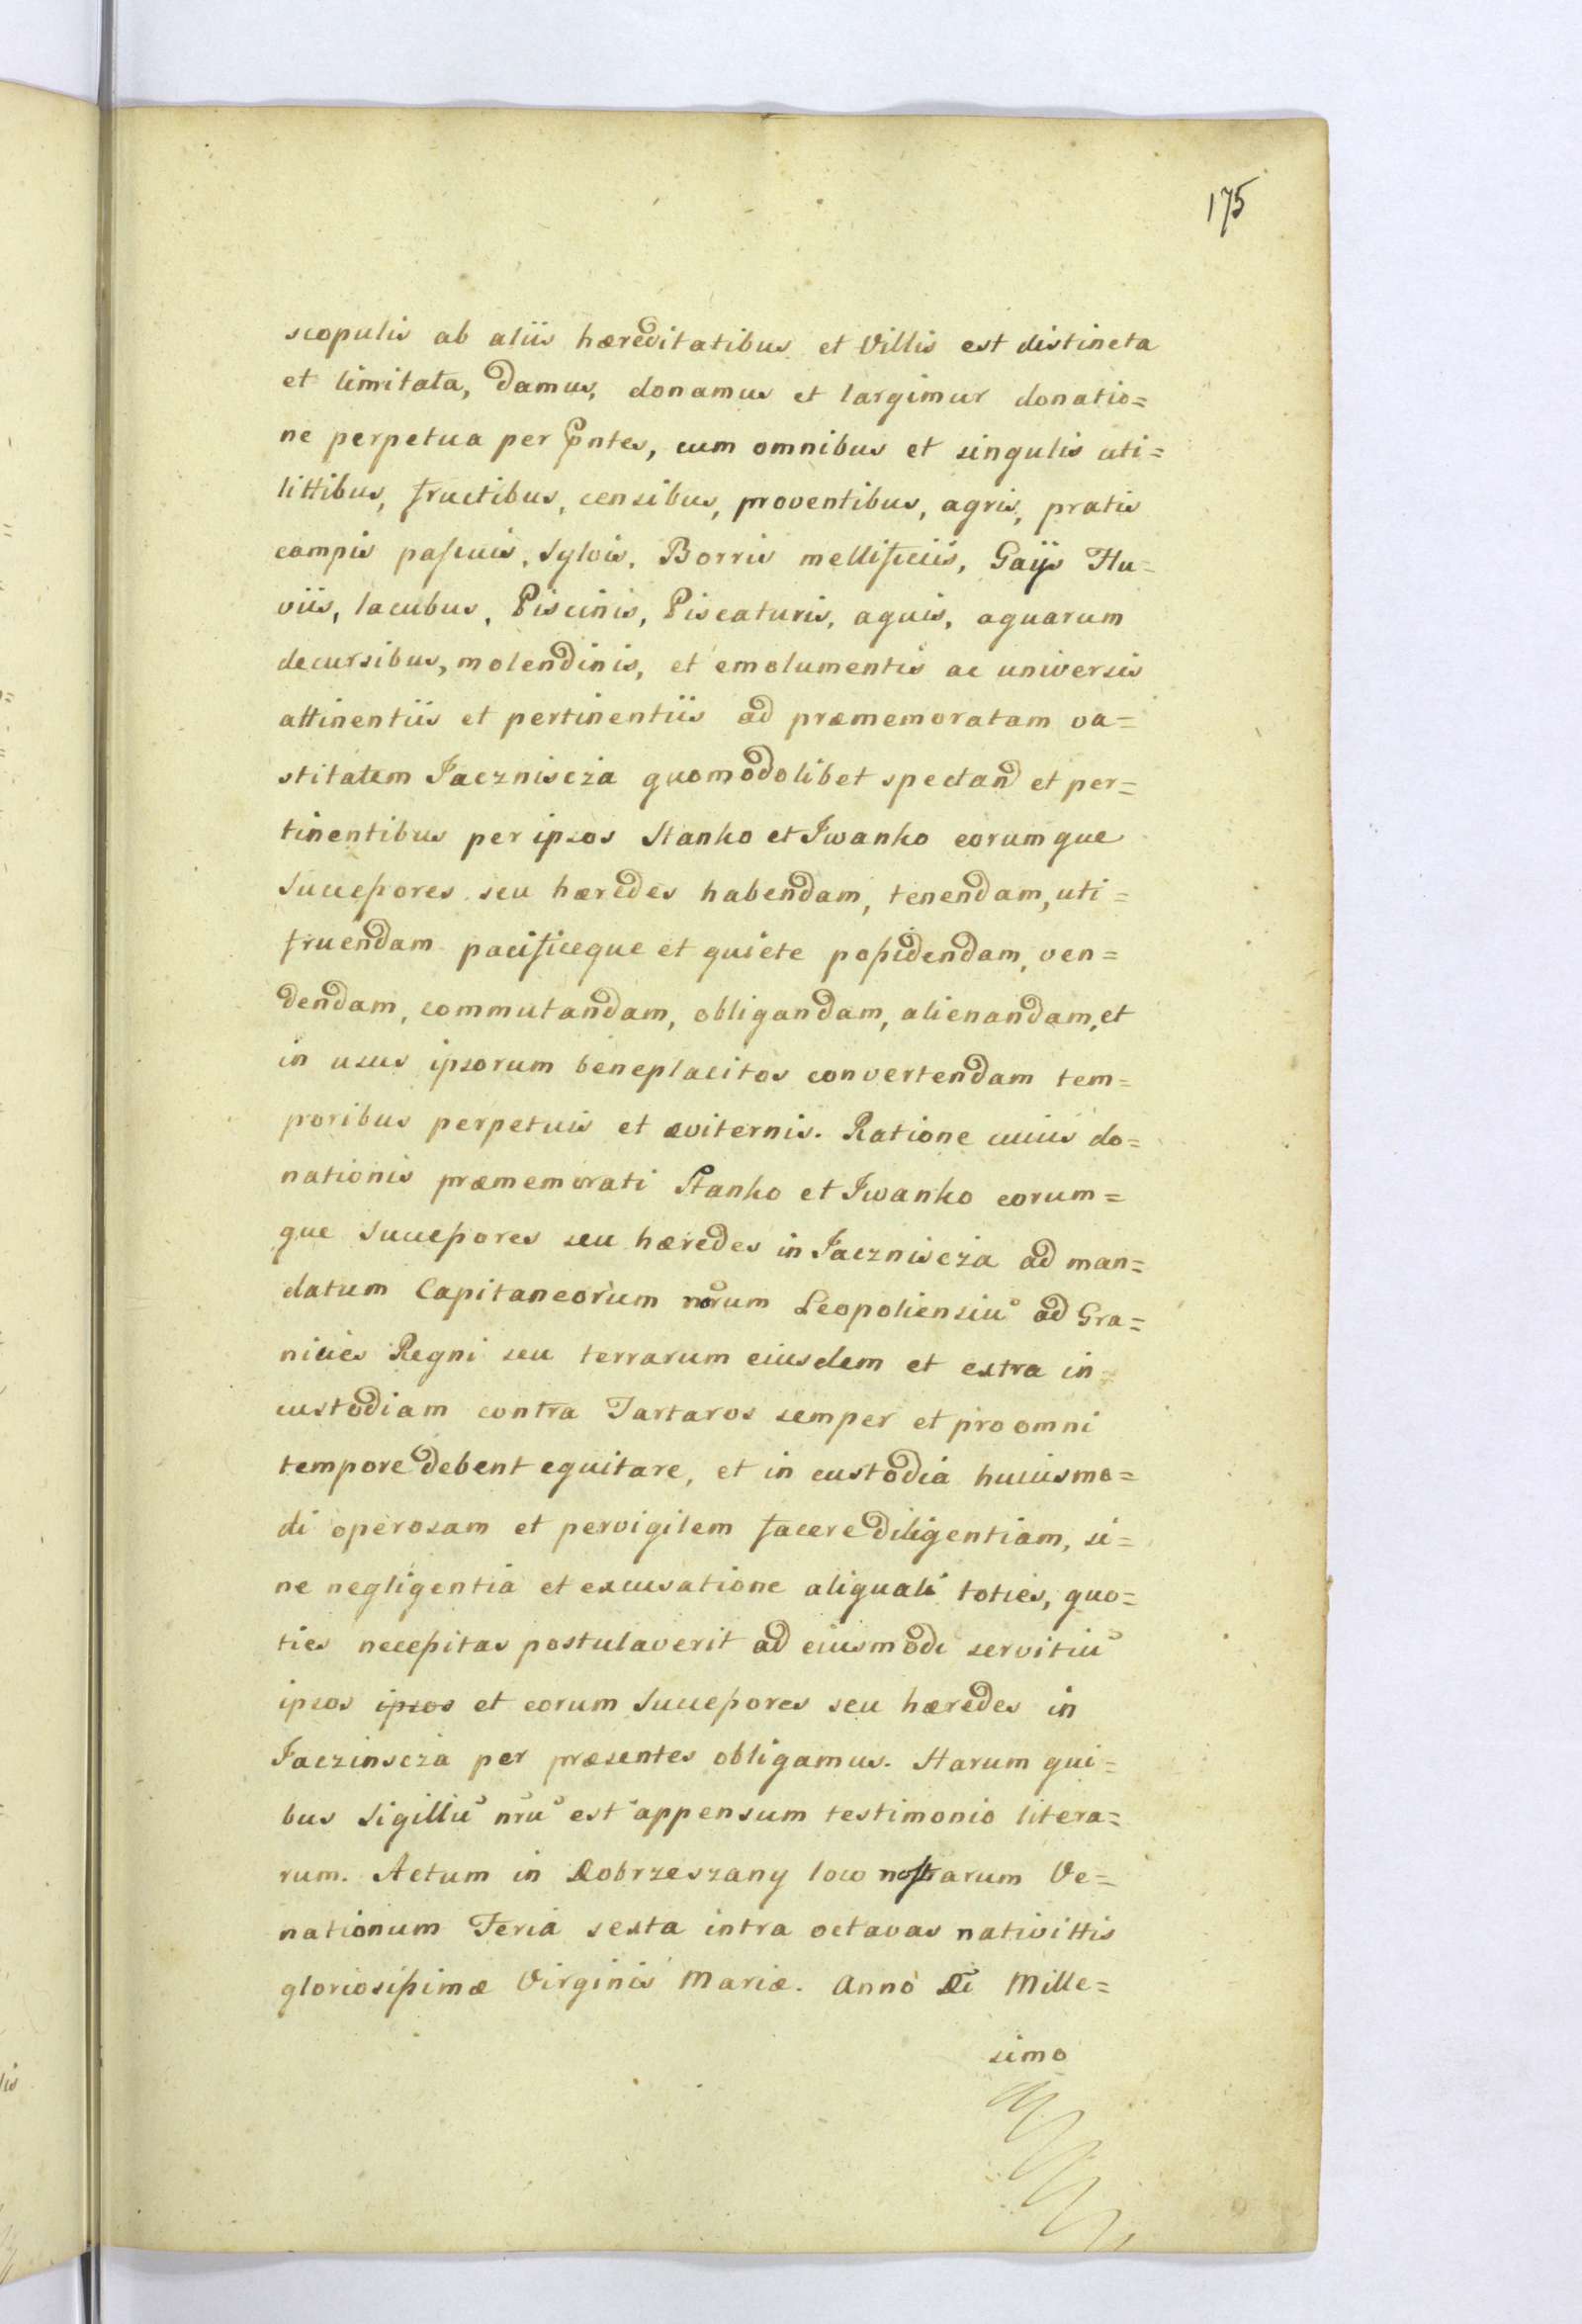 175
scopulis ab aliis hæreditatibus et Villis est distincta
et limitata, Damus, donamus et largimur donatio=
ne perpetua per Pntes, cum omnibus et singulis uti=
littibus, fructibus, censibus, proventibus, agris, pratis
campis pascuis, Sylvis, Borris mellificiis, Gaijs Flu=
viis, lacubus, Piscinis, Piscaturis, aquis, aquarum
decursibus, molendinis, et emolumentis ac universis
attinentiis et pertinentiis ad præmemoratam va=
stitatem Jaczniscza quomodolibet spectand et per=
tinentibus per ipsos Stanko et Iwanko eorumque
Successores seu hæredes habendam, tenendam, uti=
fruendam pacificeque et quiete possidendam, ven=
dendam, commutandam, obligandam, alienandam, et
in usus ipsorum beneplacitos convertendam tem=
poribus perpetuis et æviternis. Ratione cuius do=
nationis præmemorati Stanko et Iwanko eorum=
que Successores seu hæredes in Jaczniscza ad man=
datum Capitaneorum nrorum Leopoliensiu ad Gra=
nicies Regni seu terrarum eiusdem et extra in
custodiam contra Tartaros semper et pro omni
tempore debent equitare, et in custodia huiusmo=
di operosam et pervigilem facere Diligentiam, si=
ne negligentia et excusatione aliquali toties, quo=
ties necessitas postulaverit ad eiusmodi servitiu
ipsos ipsos et eorum Successores seu hæredes in
Jaczinscza per præsentes obligamus. Harum qui=
bus Sigillu nru est appensum testimonio litera=
rum. Actum in Dobrzeszany loco nostrarum Ve=
nationum Feria sexta intra octavas nativittis
gloriosissimæ Virginis Mariæ. Anno Di Mille=
simo